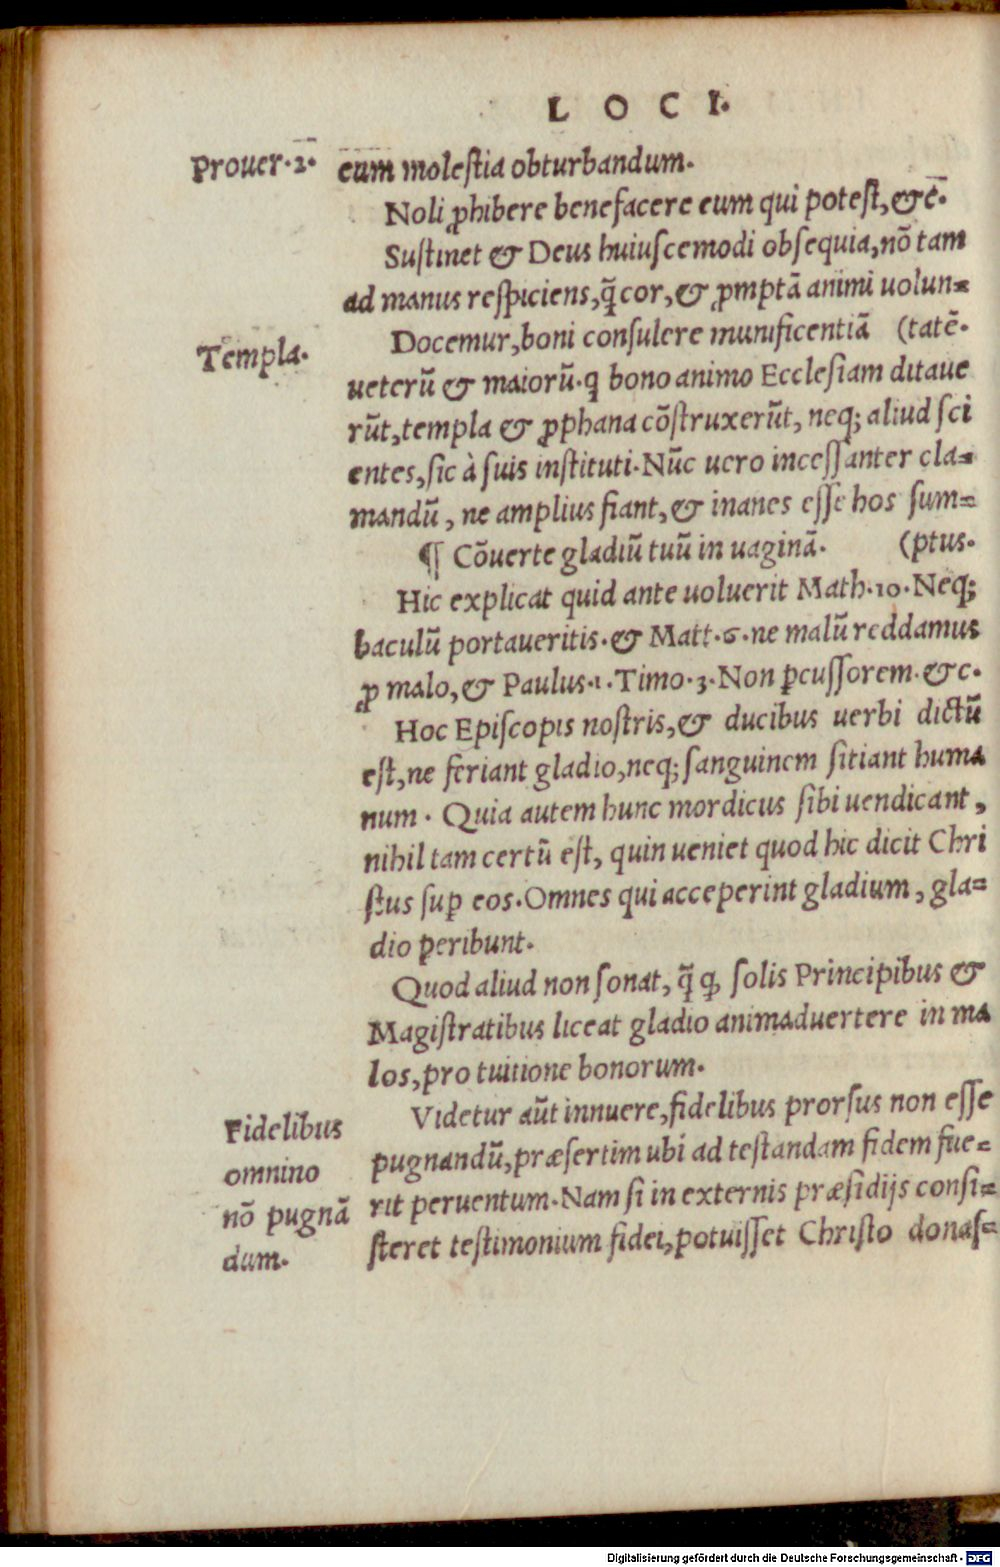 LOCI.
Prouer.2.
eum molestia obturbandum.
Noli ꝓhibere benefacere eum qui potest, &c̄.
Sustinet & Deus huiuscemodi obsequia, nō tam
ad manus respiciens, q̄ cor, & ꝓmptā animi uolun=
Docemur, boni consulere munificentiā (tatē.
Templa.
ueterū & maiorū. q bono animo Ecclesiam ditaue
rūt, templa & ꝓphana cōstruxerūt, neq; aliud sci
entes, sic à suis instituti. Nūc uero incessanter cla=
mandū, ne amplius fiant, & inanes esse hos sum=
¶ Cōuerte gladiū tuū in uaginā. (ptus.
Hic explicat quid ante uoluerit Math.10. Neq;
baculū portaueritis. & Matt.6. ne malū reddamus
ꝓ malo, & Paulus.1. Timo.3. Non ꝑcussorem. &c.
Hoc Episcopis nostris, & ducibus uerbi dictū
est, ne feriant gladio, neq; sanguinem sitiant huma
num. Quia autem hunc mordicus sibi uendicant,
nihil tam certū est, quin ueniet quod hic dicit Chri
stus suꝑ eos. Omnes qui acceperint gladium, gla=
dio peribunt.
Quod aliud non sonat, q̄ ꝙ solis Principibus &
Magistratibus liceat gladio animaduertere in ma
los, pro tuitione bonorum.
Videtur aūt innuere, fidelibus prorsus non esse
pugnandū, præsertim ubi ad testandam fidem fue=
rit peruentum. Nam si in externis præsidijs consi=
steret testimonium fidei, potuisset Christo donas=
Fidelibus
omnino
nō pugnā
dum.
Digitalisierung gefördert durch die Deutsche Forschungsgemeinschaft - DFG